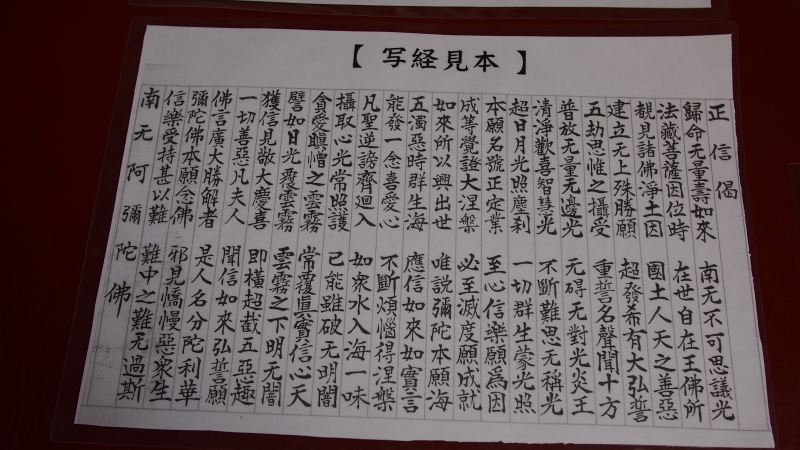 【写経見本】
正信偈
歸命无量壽如來 南无不可思議光
法藏菩薩因位時 在世自在王佛所
覩見諸佛淨土因 國土人天之善惡
建立无上殊勝願 超發希有大弘誓
五劫思惟之攝受 重誓名聲聞十方
普放无量无邊光 无碍无對光炎王
清淨歡喜智慧光 不斷難思无稱光
超日月光照塵刹 一切群生蒙光照
本願名號正定業 至心信樂願爲因
成等覺證大涅槃 必至滅度願成就
如來所以興出世 唯說彌陀本願海
五濁惡時群生海 應信如來如實言
能發一念喜愛心 不斷煩惱得涅槃
凡聖逆謗齊迴入 如衆水入海一味
攝取心光常照護 已能雖破无明闇
貪愛瞋憎之雲霧 常覆眞實信心天
譬如日光覆雲霧 雲霧之下明无闇
獲信見敬大慶喜 即橫超截五惡趣
一切善惡凡夫人 聞信如來弘誓願
佛言廣大勝解者 是人名分陀利華
彌陀佛本願念佛 邪見憍慢惡衆生
信樂受持甚以難 難中之難无過斯
南无阿彌陀佛